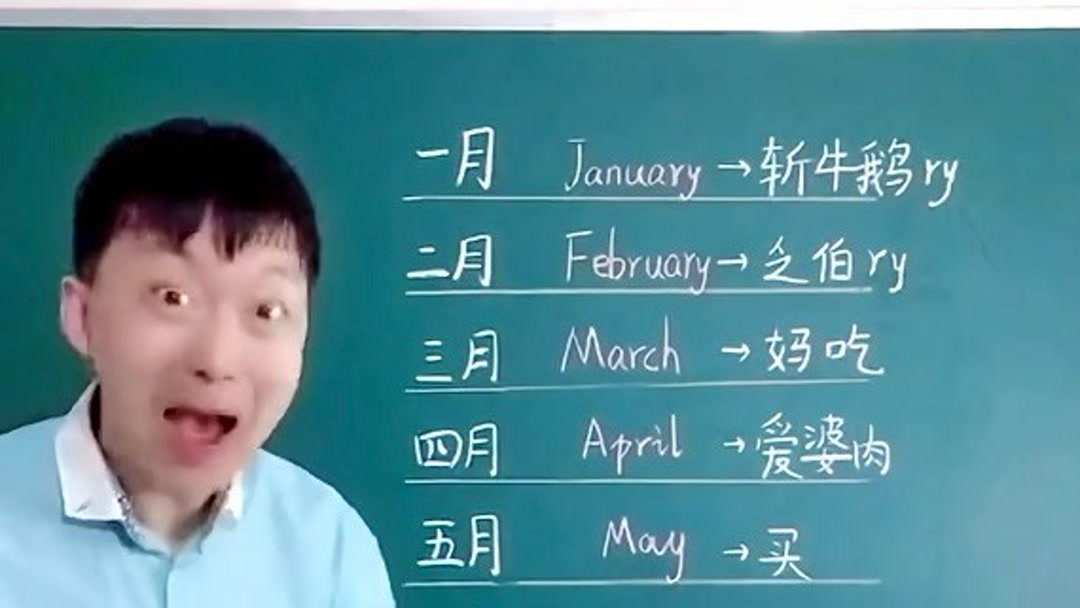 一月 January → 斩牛鹅ry
二月 February → 乏伯ry
三月 March → 妈吃
四月 April → 爱婆肉
五月 May → 买